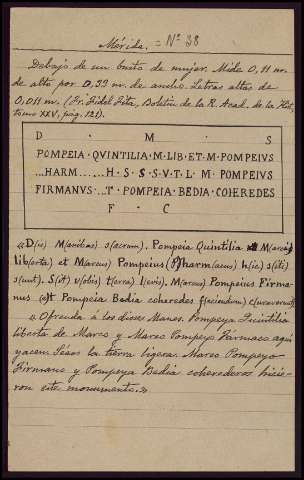 Mérida. = Nº 38
Debajo de un busto de mujer. Mide 0,11 m.
de alto por 0,33 m. de ancho. Letras altas de
0,011 m. (Fr. Fidel Fita, Boletín de la R. Acad. de la Hist.
tomo XXV, pág. 121).
D M S
POMPEIA · QVINTILIA · M · LIB · ET · M · POMPEIVS
...HARM......H · S · S · V · T · L · M · POMPEIVS
FIRMANVS ...T · POMPEIA · BEDIA · COHEREDES
F · C
«D(is) M(anibus) s(acrum). Pompeia Quintilia M(arci)
lib(erta) et M(arcus) Pompeius (P)harm(acus) h(ic) s(iti)
s(unt). S(it) v(obis) t(erra) l(evis). M(arcus) Pompeius Firma-
nus (e)t Pompeia Bedia coheredes f(aciendum) c(uraverunt)
«Ofrenda á los dioses Manes. Pompeya Quintilia
liberta de Marco y Marco Pompeyo Fármaco aquí
yacen. Séaos la tierra ligera. Marco Pompeyo
Firmano y Pompeya Bedia coherederos hicie-
ron este monumento.»